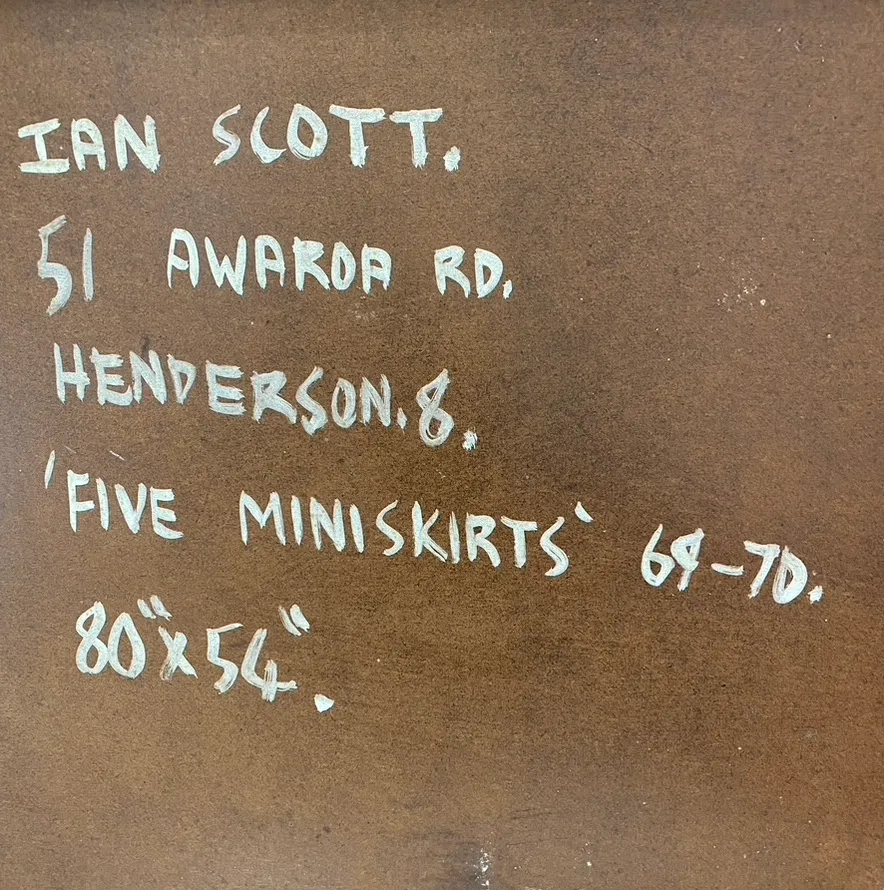 IAN SCOTT.
51 AWAROA RD.
HENDERSON.8.
'FIVE MINISKIRTS' 69-70.
80"x54".